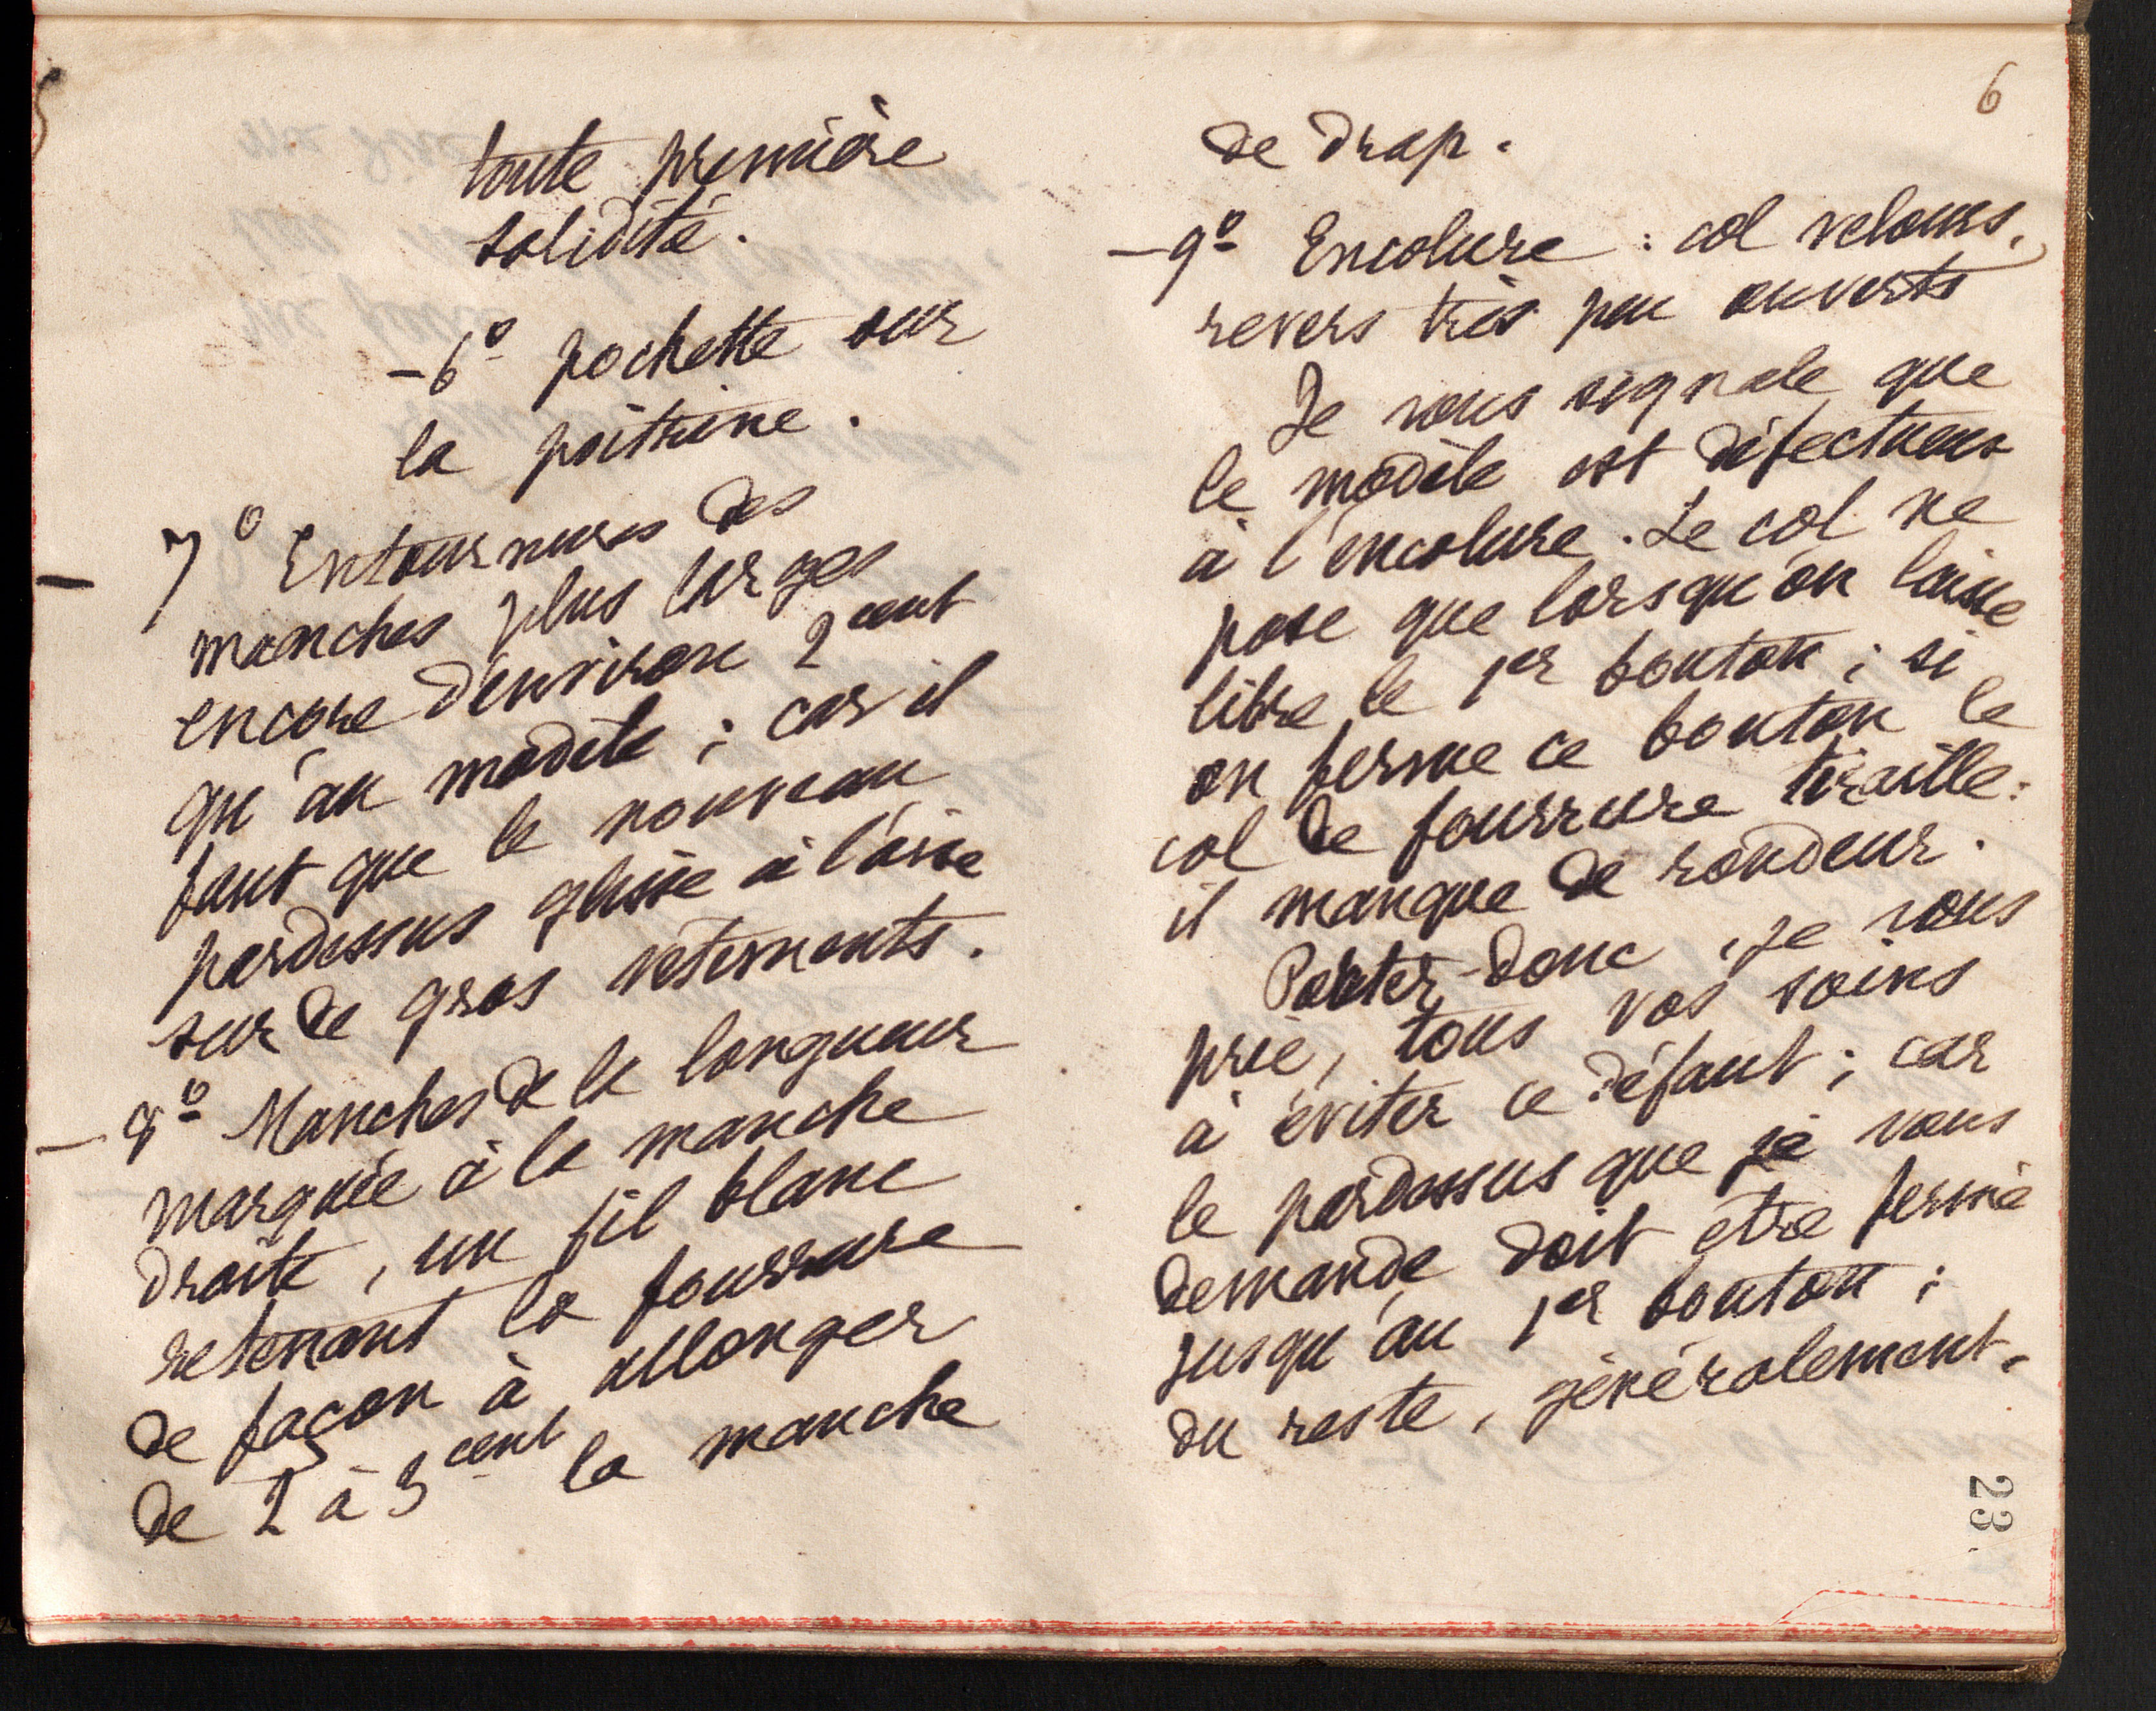 toute première
solidité.
- 6° pochette sur
la poitrine.
- 7° Entournures des
manches plus larges
encore d'environ 2 cent
qu'au modèle ; car il
faut que le nouveau
pardessus glisse à l'aise
sur de gros vêtements.
- 8° Manches de la longueur
marquée à la manche
droite, un fil blanc
retenant la fourrure
de façon à allonger
de 2 à 3 cent la manche
6
de drap.
- 9° Encolure : col velours,
revers très peu ouverts
Je vous signale que
le modèle est défectueux
à l'encolure. Le col ne
pose que lorsqu'on laisse
libre le 1er bouton ; si
on ferme ce bouton le
col de fourrure tiraille :
il manque de rondeur.
Portez-donc, je vous
prie, tous vos soins
à éviter ce défaut ; car
le pardessus que je vous
demande doit être fermé
jusqu'au 1er bouton ;
du reste, généralement.
23